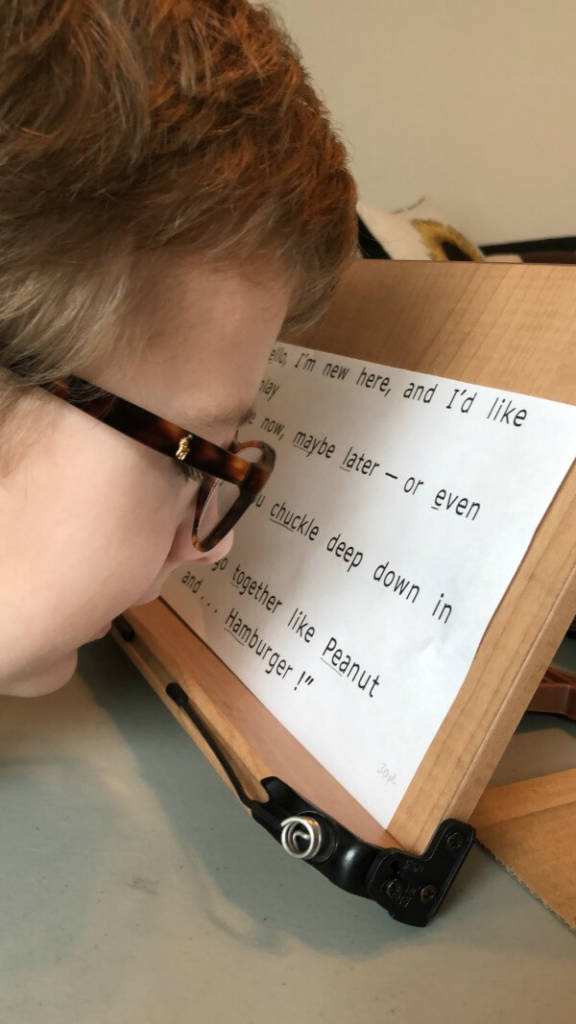 ello, I'm new here, and I'd like
play
now, maybe later – or even
chuckle deep down in
go together like Peanut
and... Hamburger!"